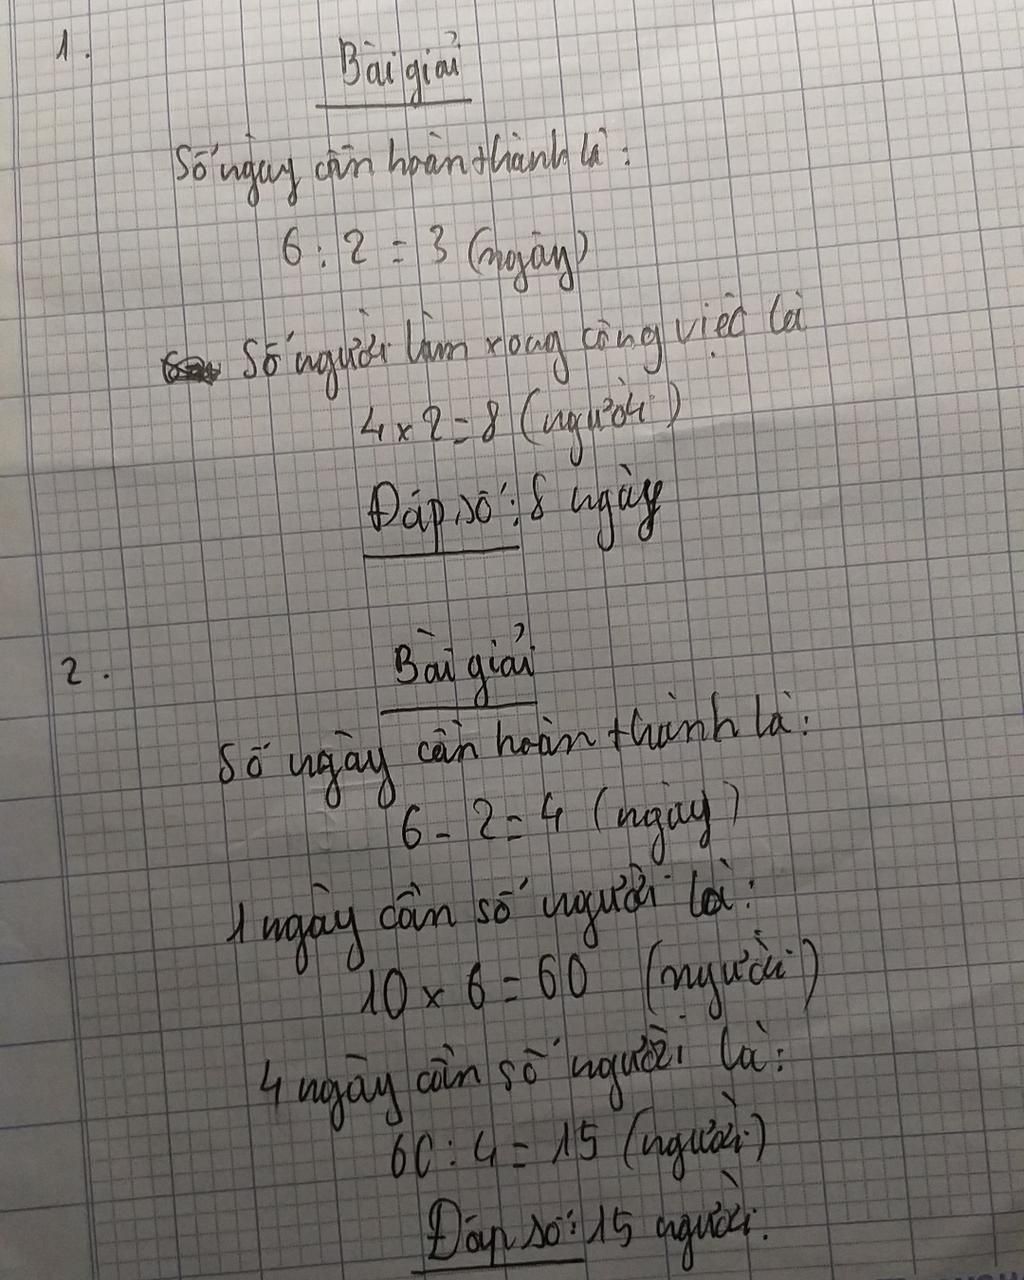 1.
Bài giải
Số ngày cần hoàn thành là:
6 : 2 = 3 (ngày)
Số người làm xong công việc là
4 x 2 = 8 (người)
Đáp số: 8 ngày
2.
Bài giải
Số ngày cần hoàn thành là:
6 - 2 = 4 (ngày)
1 ngày cần số người là:
10 x 6 = 60 (người)
4 ngày cần số người là:
60 : 4 = 15 (người)
Đáp số: 15 người.